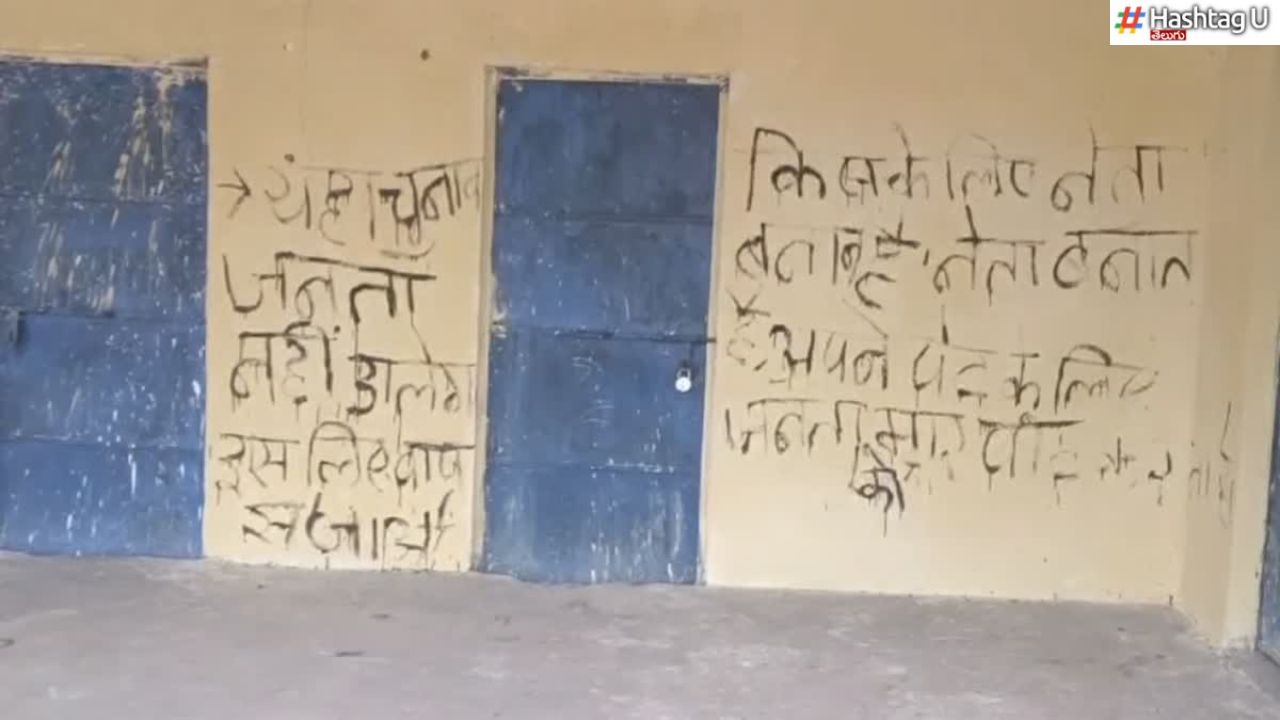 # Hashtag U
తెలుగు
→ यहा चुनाव
जनता
नहीं डालेगा
इस लिए वाप
स जाओ
किसके लिए नेता
नेता बनात
है अपने पेट के लिए
जनता को मार पीट